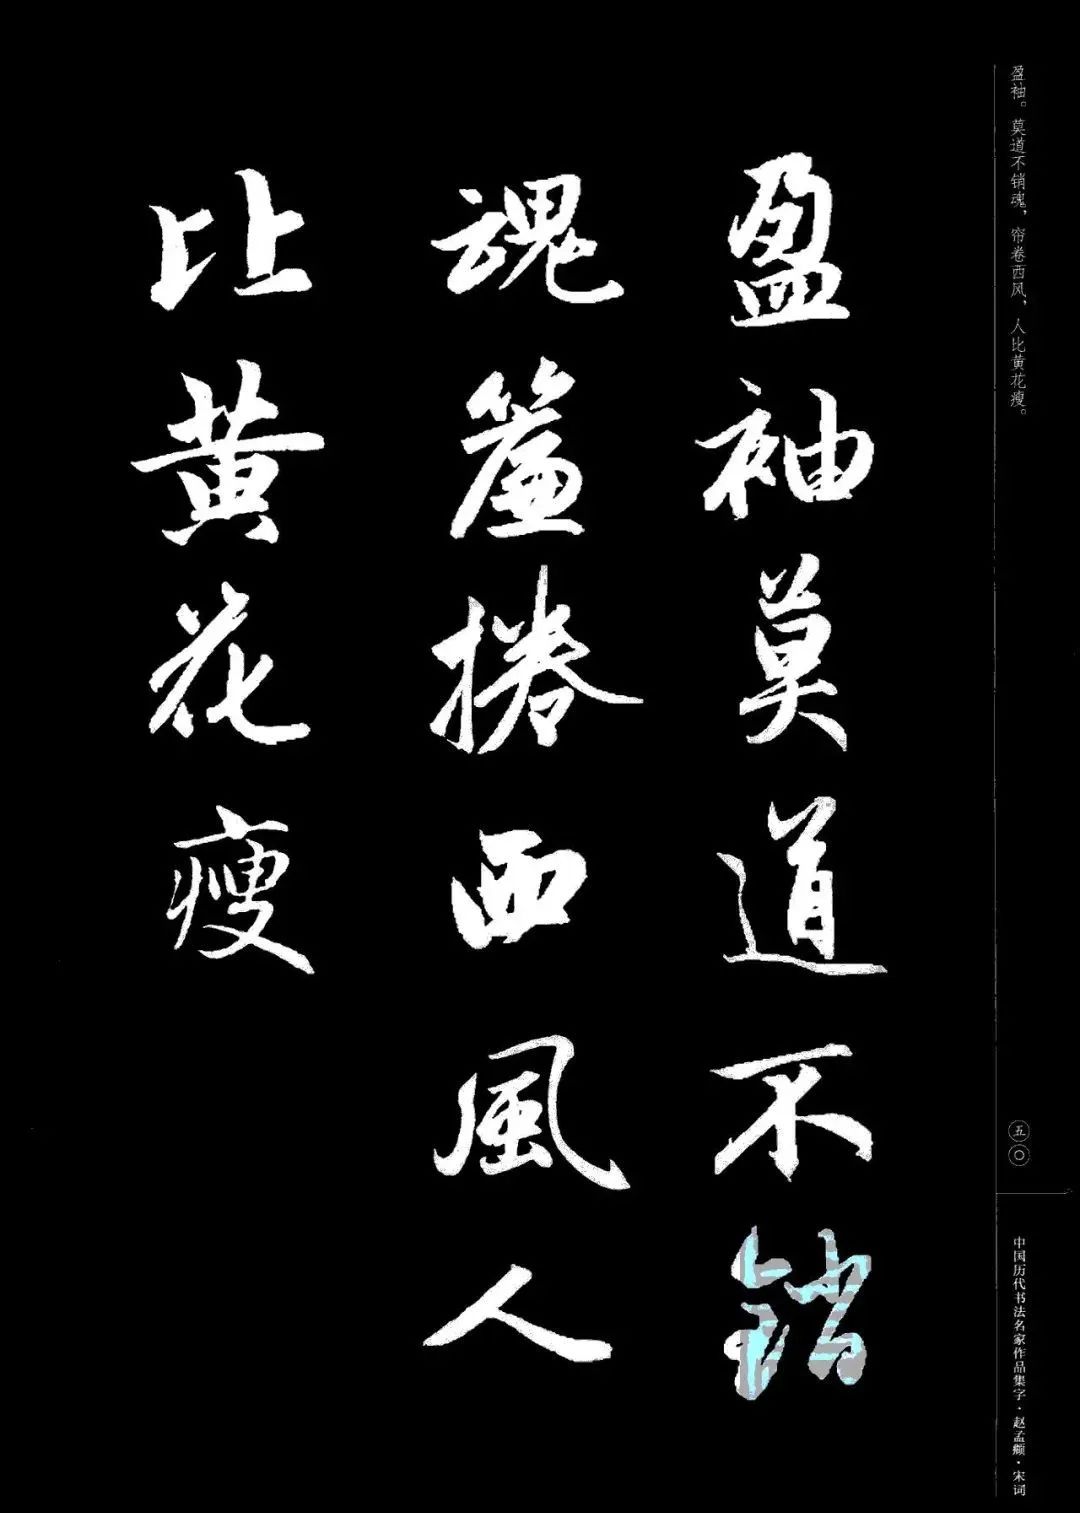 盈袖。莫道不销魂，帘卷西风，人比黄花瘦。
盈袖莫道不銷
魂簾捲西風人
比黃花瘦
五〇
中国历代书法名家作品集字·赵孟頫·宋词